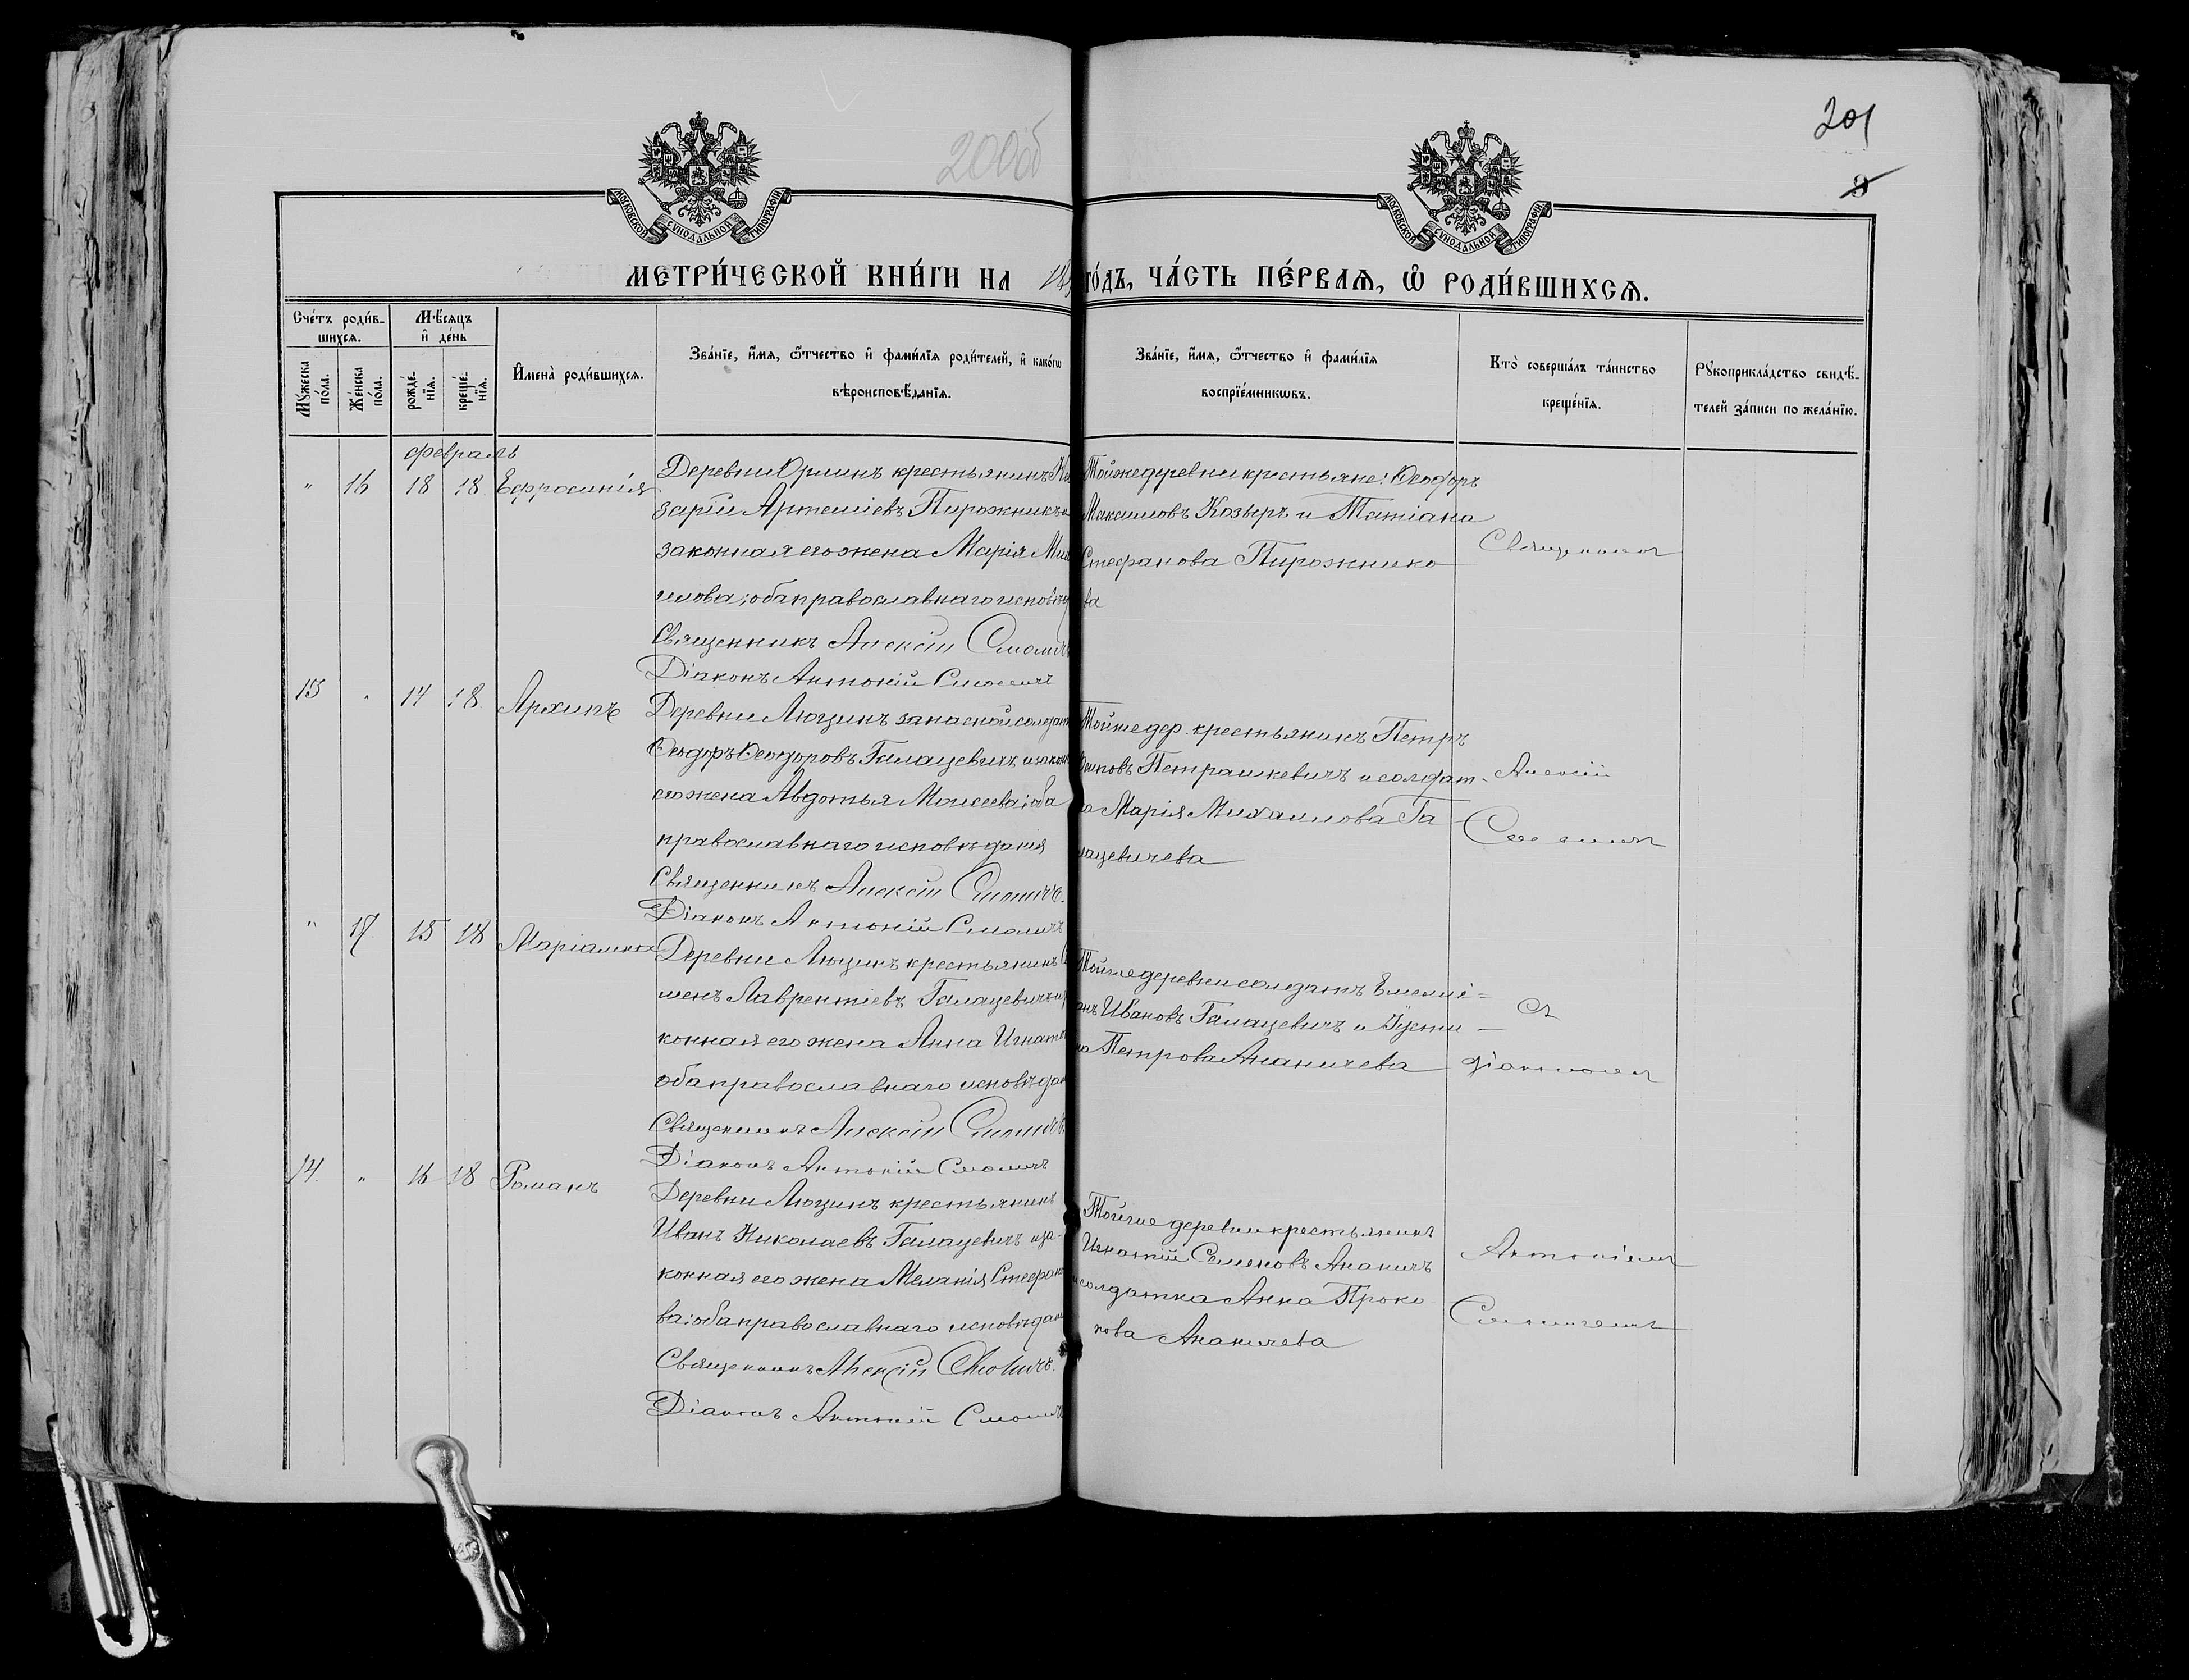 200об
201
8
МОСКОВСКОЙ СѴНОДАЛЬНОЙ ТИПОГРАФІИ
МОСКОВСКОЙ СѴНОДАЛЬНОЙ ТИПОГРАФІИ
МЕТРИ́ЧЕСКОЙ КНИ́ГИ НА 18 ГО́ДЪ, ЧА́СТЬ ПЕ́РВАѦ, Ѽ РОДИ́ВШИХСѦ.
Сче́тъ роди́в-
шихсѧ.
Мѣ́сѧцъ
и҆ де́нь
Мꙋ́жеска по́ла.
Же́нска по́ла.
рожде́-
нїѧ.
креще́-
нїѧ.
И҆мена̀ роди́вшихсѧ.
Зва́нїе, и҆́мѧ, ѻ҆́тчество и҆ фами́лїѧ роди́телей, и҆ како́гѡ
вѣроисповѣ́данїѧ.
Зва́нїе, и҆́мѧ, ѻ҆́тчество и҆ фами́лїѧ
воспрїе́мникѡвъ.
Кто̀ соверша́лъ та́инство
креще́нїѧ.
Рꙋкоприкла́дство свидѣ́-
телей за́писи по жела́нїю.
февраль
" 16 18 18 Ефросинія
Деревни крестьянинъ
зарій Артеміевъ Пирожникъ
законная его жена Марія
мова; оба православнаго исповѣд
Священникъ Алексій Смоличъ
Діаконъ Антоній Смоличъ
Тойже деревни крестьяне: Ѳеодоръ
Максимовъ Козыръ и Татіана
Стефанова Пирожнико
ва
13 " 14 18 Архипъ
Деревни Лющинъ запасной солдатъ
Ѳеодоръ Ѳеодоровъ Галацевичъ и закон
его жена Авдотья Моисеева; оба
православнаго исповѣданія
Священникъ Алексій Смоличъ.
Діаконъ Антоній Смоличъ
Тойже дер. крестьянинъ Петръ
Осиповъ Петрашкевичъ и солдат-
ка Марія Михаилова Га
лацевичева
" 17 15 18 Маріамна
Деревни Лющинъ крестьянинъ
менъ Лаврентіевъ Галацевичъ и
конная его жена Анна Игнат
оба православнаго исповѣдан
Священникъ Алексій Смоличъ
Діаконъ Антоній Смоличъ
Тойже деревни солдатъ Емелиі=
анъ Ивановъ Галацевичъ и Іусти
на Петрова Ананичева
14 " 16 18 Романъ
Деревни Лющинъ крестьянинъ
Иванъ Николаевъ Галацевичъ и за-
конная его жена Меланія Стефано
ва; оба православнаго исповѣдан
Священникъ Алексій Смоличъ.
Діаконъ Антоній Смоличъ
Тойже деревни крестьянинъ
Игнатій Семеновъ Ананичъ
и солдатка Анна Проко
пова Ананичева
Священникъ
Алексій
Смоличъ
съ
діакономъ
Антоніемъ
Смоличемъ